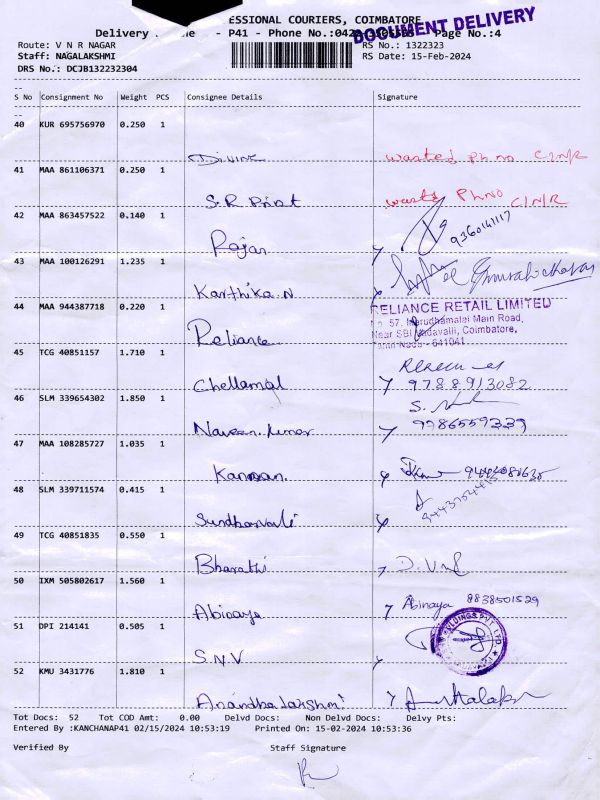 ESSIONAL COURIERS, COIMBATORE
DOCUMENT DELIVERY
Delivery - P41 - Phone No.:0422 Page No.:4
Route: V N R NAGAR RS No.: 1322323
Staff: NAGALAKSHMI RS Date: 15-Feb-2024
DRS No.: DCJB132232304
S No Consignment No Weight PCS Consignee Details Signature
40 KUR 695756970 0.250 1
Divine wasted Ph no C/N/R
41 MAA 861106371 0.250 1
S.R Print Ph NO C/N/R
42 MAA 863457522 0.140 1
Rajan 9360141117
43 MAA 100126291 1.235 1
Karthika.N
44 MAA 944387718 0.220 1
RELIANCE RETAIL LIMITED
No. 57, Marudhamalai Main Road,
Reliance Near SBI Vadavalli, Coimbatore,
Tamil Nadu - 641041
45 TCG 40851157 1.710 1
Chellamal 9788913082
46 SLM 339654302 1.850 1
Naveen.kumar 9786559339
47 MAA 108285727 1.035 1
Kannan.
48 SLM 339711574 0.415 1
Sundharvalli
49 TCG 40851835 0.550 1
Bharathi
50 IXM 505802617 1.560 1
Abinaya Abinaya 8838501529
51 DPI 214141 0.505 1
S.N.V
52 KMU 3431776 1.810 1
Anandhalakshmi
Tot Docs: 52 Tot COD Amt: 0.00 Delvd Docs: Non Delvd Docs: Delvy Pts:
Entered By :KANCHANAP41 02/15/2024 10:53:19 Printed On: 15-02-2024 10:53:36
Verified By Staff Signature